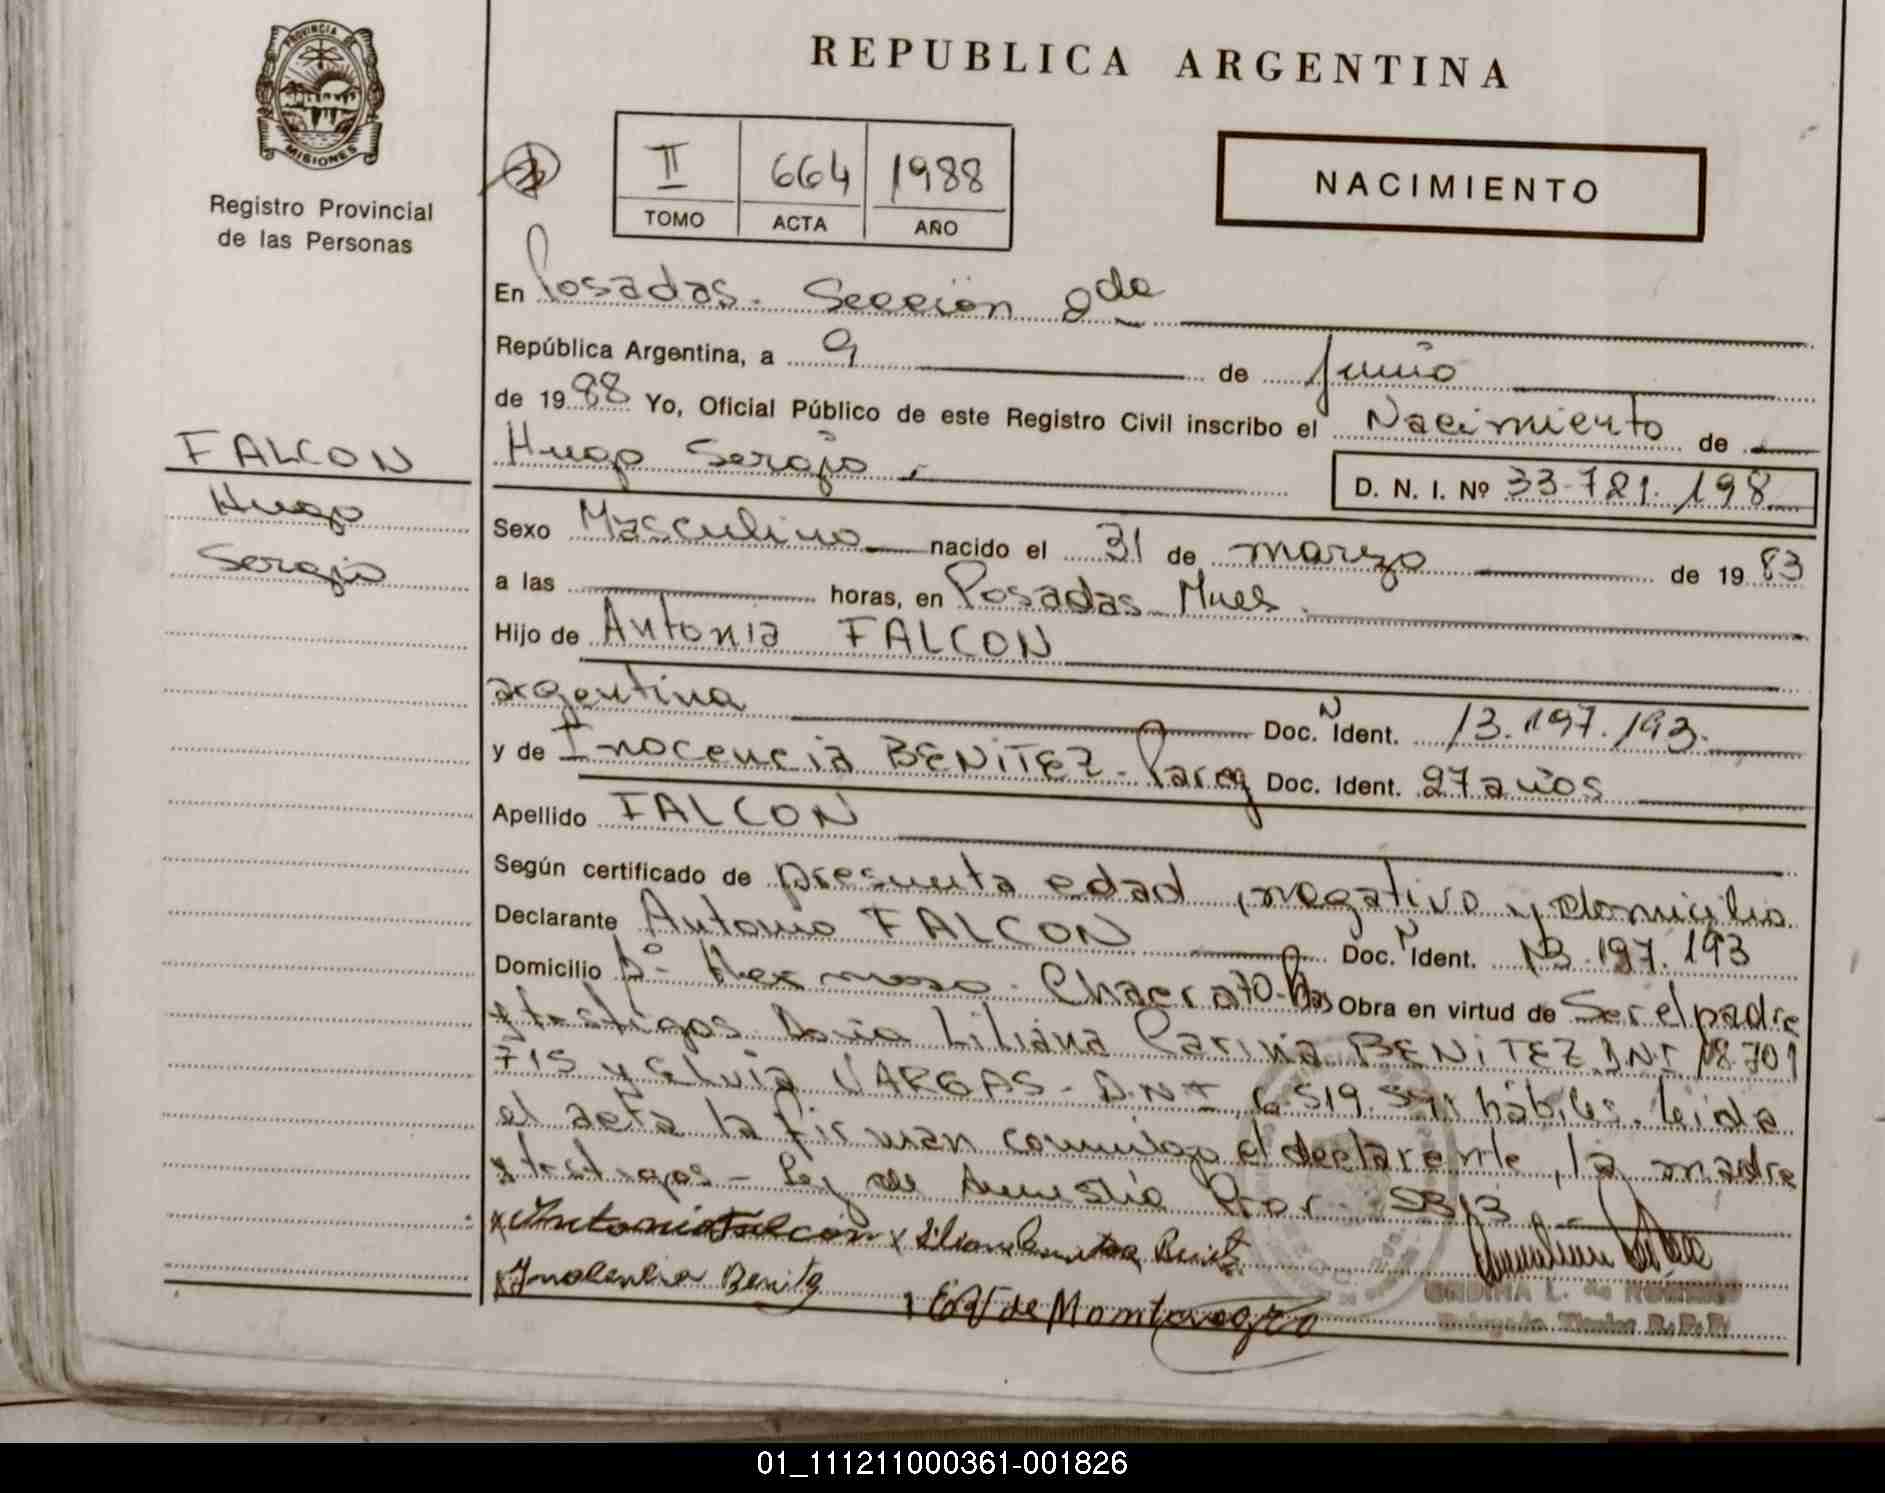 PROVINCIA DE
MISIONES
Registro Provincial
de las Personas
FALCON
Hugo
Sergio
REPUBLICA ARGENTINA
II 664 1988
TOMO ACTA AÑO
NACIMIENTO
En Posadas. Sección 2da
República Argentina, a 9 de Junio
de 1988 Yo, Oficial Público de este Registro Civil inscribo el Nacimiento de
Hugo Sergio
D. N. I. Nº 33.781.198
Sexo Masculino nacido el 31 de marzo de 1983
a las horas, en Posadas Mnes.
Hijo de Antonio FALCON
argentina Doc. N Ident. 13.197.193.
y de Inocencia BENITEZ - Parag Doc. Ident. 27 años
Apellido FALCON
Según certificado de presunta edad, negativo y domicilio
Declarante Antonio FALCON Doc. N Ident. 13.197.193
Domicilio Bº Hermoso. Chacra 70-Pdas Obra en virtud de Ser el padre
y testigos Liliana Carina BENITEZ DNI 18.701
715 y Elvia VARGAS - D.N.I 6.519. hábiles. leida
el acta la firman conmigo el declarente, la madre
y testigos - Ley de Amnistia Pror.
x Antonio Falcon x Benitez
x Inocencia Benitez de Montenegro
01_111211000361-001826